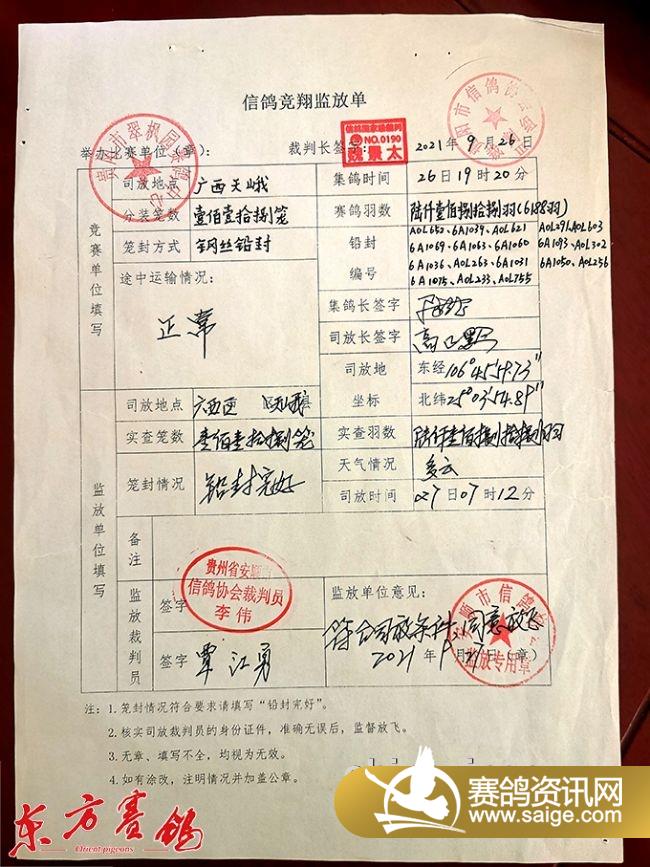 信鸽竞翔监放单
举办比赛单位（章）： 裁判长签字： 2021年9月26日
信鸽国家级裁判
NO.0190
魏景太
竞赛单位填写
司放地点 广西天峨 集鸽时间 26日19时20分
分装笼数 壹佰壹拾捌笼 赛鸽羽数 陆仟壹佰捌拾捌羽(6188羽)
笼封方式 钢丝铅封 铅封编号
A0L652、6A1034、A0L621 A0L291、A0L603
6A1069、6A1063、6A1060 6A1093、A0L302
6A1036、A0L263、6A1031 6A1050、A0L256
6A1075、A0L233、A0L755
途中运输情况： 正常
集鸽长签字
司放长签字
司放地坐标 东经106°45′54.73″
北纬25°03′54.87″
监放单位填写
司放地点 广西 天峨
实查笼数 壹佰壹拾捌笼 实查羽数 陆仟壹佰捌拾捌羽
笼封情况 铅封完好 天气情况 多云
司放时间 27日07时12分
备注
监放裁判员
签字
贵州省安顺市
信鸽协会裁判员
李伟
签字 覃江勇
监放单位意见：
符合司放条件，同意放飞
2021年9月27日（章）
安顺市信鸽协会
监放专用章
注：1.笼封情况符合要求请填写“铅封完好”。
2.核实司放裁判员的身份证件，准确无误后，监督放飞。
3.无章、填写不全，均视为无效。
4.如有涂改，注明情况并加盖公章。
东方赛鸽
Orient pigeons
赛鸽资讯网
www.saige.com